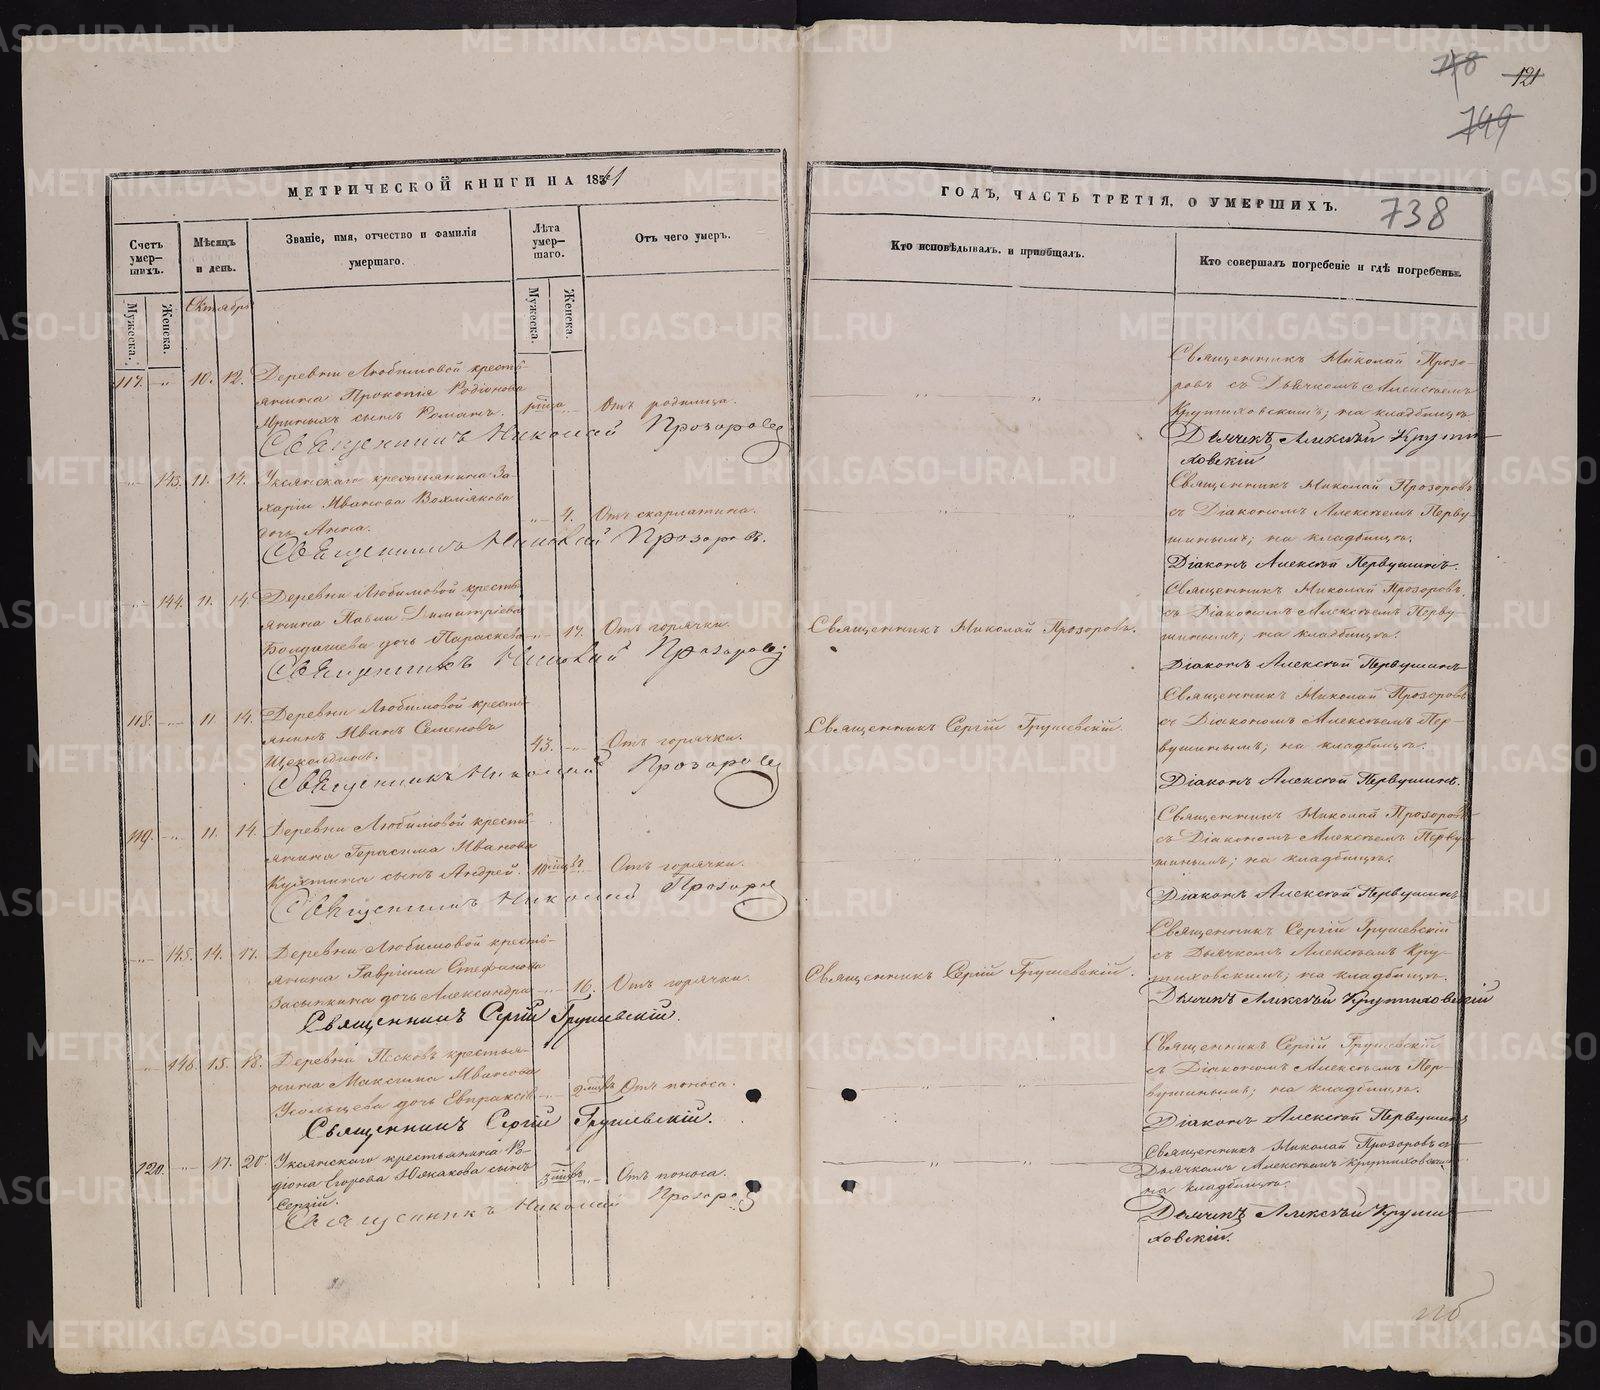 718
121
749
738
МЕТРИЧЕСКОЙ КНИГИ НА 1861
Счетъ умер-шихъ.
Мѣсяцъ и день.
Званіе, имя, отчество и фамилія умершаго.
Лѣта умер-шаго.
Отъ чего умеръ.
Мужеска.
Женска.
Октябрь
Мужеска.
Женска.
117. -„- 10. 12. Деревни Любимовой кресть-
янина Прокопія Родіонова
сынъ Романъ. Отъ родимца.
Священникъ Николай Прозоровъ
-„- 143. 11. 14. Уксянскаго крестьянина За-
харіи Иванова Вохмякова
дочь Анна. -„- 4. Отъ скарлатина.
Священникъ Николай Прозоровъ.
-„- 144. 11. 14. Деревни Любимовой кресть-
янина Павла Димитріева
Болдышева дочь Параскева -„- 17. Отъ горячки.
Священникъ Николай Прозоровъ
118. -„- 11. 14. Деревни Любимовой кресть-
янинъ Иванъ Семеновъ
Щеколдинъ. 43. -„- Отъ горячки.
Священникъ Николай Прозоровъ
119. -„- 11. 14. Деревни Любимовой кресть-
янина Герасима Иванова
Кухтина сынъ Андрей. 10 мцвъ -„- Отъ горячки.
Священникъ Николай Прозоровъ
-„- 145. 14. 17. Деревни Любимовой кресть-
янина Гавріила Стефанова
Засыпкина дочь Александра -„- 16. Отъ горячки.
Священникъ Сергій Грушевскій.
-„- 146. 15. 18. Деревни Песковъ крестья-
нина Максима Иванова
Усольцева дочь Евпраксія -„- 2 мцвъ Отъ поноса.
Священникъ Сергій Грушевскій.
120. -„- 17. 20. Уксянскаго крестьянина Ро-
діона Егорова Южакова сынъ
Сергій. 3 мцвъ -„- Отъ поноса.
Священникъ Николай Прозоровъ
ГОДЪ, ЧАСТЬ ТРЕТІЯ, О УМЕРШИХЪ.
Кто исповѣдывалъ. и пріобщалъ.
Кто совершалъ погребеніе и гдѣ погребены.
Священникъ Николай Прозо-
ровъ съ Дьячкомъ Алексѣемъ
Крутиховскимъ; на кладбищѣ
Дьячекъ Алексѣй Крути-
ховскій
Священникъ Николай Прозоровъ
съ Діакономъ Алексѣемъ Перву-
шинымъ; на кладбищѣ.
Діаконъ Алексѣй Первушинъ.
Священникъ Николай Прозоровъ.
Священникъ Николай Прозоровъ.
съ Діакономъ Алексѣемъ Перву-
шинымъ; на кладбищѣ.
Діаконъ Алексѣй Первушинъ
Священникъ Сергій Грушевскій.
Священникъ Николай Прозоровъ
съ Діакономъ Алексѣемъ Пер-
вушинымъ; на кладбищѣ.
Діаконъ Алексѣй Первушинъ.
Священникъ Николай Прозоровъ
съ Діакономъ Алексѣемъ Перву-
шинымъ; на кладбищѣ.
Діаконъ Алексѣй Первушинъ
Священникъ Сергій Грушевскій.
Священникъ Сергій Грушевскій
съ Дьячкомъ Алексѣемъ Кру-
тиховскимъ; на кладбищѣ.
Дьячекъ Алексѣй Крутиховскій
Священникъ Сергій Грушевскій
съ Діакономъ Алексѣемъ Пер-
вушинымъ; на кладбищѣ.
Діаконъ Алексѣй Первушинъ
Священникъ Николай Прозоровъ съ
Дьячкомъ Алексѣемъ Крутиховскимъ
на кладбищѣ.
Дьячекъ Алексѣй Крути-
ховскій.
METRIKI.GASO-URAL.RU